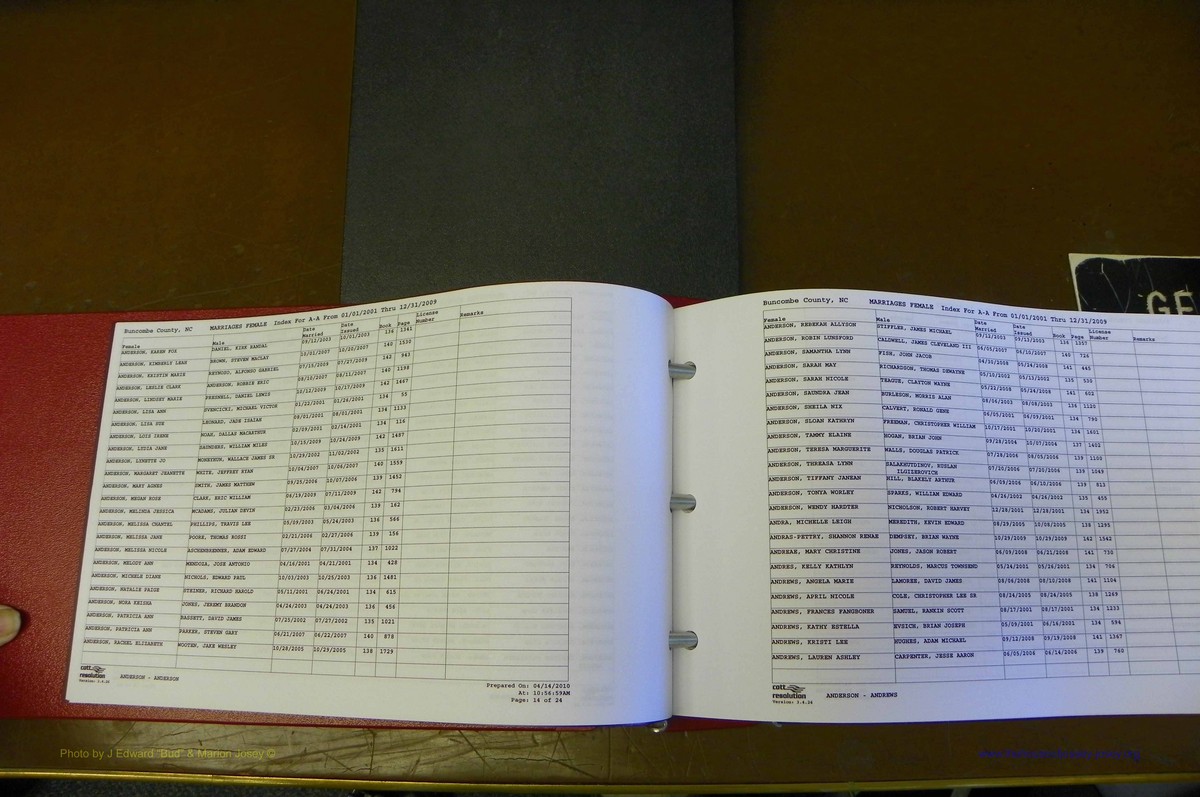 Buncombe County, NC MARRIAGES FEMALE Index For A-A From 01/01/2001 Thru 12/31/2009
Female Male Date Married Date Issued Book Page License Number Remarks
ANDERSON, KAREN FOX DANIEL, KIRK RANDAL 09/12/2003 10/01/2003 136 1341
ANDERSON, KIMBERLY LEAH BROWN, STEVEN MACLAY 10/01/2007 10/20/2007 140 1530
ANDERSON, KRISTIN MARIE REYNOSO, ALFONSO GABRIEL 07/15/2009 07/27/2009 142 941
ANDERSON, LESLIE CLARK ANDERSON, ROBBIE ERIC 08/10/2007 08/11/2007 140 1198
ANDERSON, LINDSEY MARIE PRESNELL, DANIEL LEWIS 10/12/2009 10/17/2009 142 1467
ANDERSON, LISA ANN SVENCICKI, MICHAEL VICTOR 01/22/2001 01/26/2001 134 55
ANDERSON, LISA SUE LEONARD, JADE ISAIAH 08/01/2001 08/01/2001 134 1133
ANDERSON, LOIS IRENE NOAH, DALLAS MACARTHUR 02/09/2001 02/14/2001 134 116
ANDERSON, LUZIA JANE SAUNDERS, WILLIAM MILES 10/15/2009 10/24/2009 142 1487
ANDERSON, LYNETTE JO MONEYHUN, WALLACE JAMES SR 10/29/2002 11/02/2002 135 1611
ANDERSON, MARGARET JEANETTE WHITE, JEFFREY RYAN 10/04/2007 10/06/2007 140 1559
ANDERSON, MARY AGNES SMITH, JAMES MATTHEW 09/25/2006 10/07/2006 139 1452
ANDERSON, MEGAN ROSE CLARK, ERIC WILLIAM 06/19/2009 07/11/2009 142 794
ANDERSON, MELINDA JESSICA MCADAMS, JULIAN DEVIN 02/23/2006 03/04/2006 139 162
ANDERSON, MELISSA CHANTEL PHILLIPS, TRAVIS LEE 05/09/2003 05/24/2003 136 566
ANDERSON, MELISSA JANE POORE, THOMAS ROSSI 02/21/2006 02/27/2006 139 156
ANDERSON, MELISSA NICOLE ASCHENBRENNER, ADAM EDWARD 07/27/2004 07/31/2004 137 1022
ANDERSON, MELODY ANN MENDOZA, JOSE ANTONIO 04/16/2001 04/21/2001 134 428
ANDERSON, MICHELE DIANE NICHOLS, EDWARD PAUL 10/03/2003 10/25/2003 136 1481
ANDERSON, NATALIE PAIGE STEINER, RICHARD HAROLD 05/11/2001 06/24/2001 134 615
ANDERSON, NORA KEISHA JONES, JEREMY BRANDON 04/24/2003 04/24/2003 136 456
ANDERSON, PATRICIA ANN BASSETT, DAVID JAMES 07/25/2002 07/27/2002 135 1021
ANDERSON, PATRICIA ANN PARKER, STEVEN GARY 06/21/2007 06/22/2007 140 878
ANDERSON, RACHEL ELIZABETH WOOTEN, JAKE WESLEY 10/28/2005 10/29/2005 138 1729
cott
resolution
Version: 3.4.24
ANDERSON - ANDERSON
Prepared On: 04/14/2010
At: 10:56:59AM
Page: 14 of 24
Buncombe County, NC MARRIAGES FEMALE Index For A-A From 01/01/2001 Thru 12/31/2009
Female Male Date Married Date Issued Book Page License Number Remarks
ANDERSON, REBEKAH ALLYSON STIFFLER, JAMES MICHAEL 09/12/2003 09/13/2003 136 1357
ANDERSON, ROBIN LUNSFORD CALDWELL, JAMES CLEVELAND III 06/05/2007 06/10/2007 140 726
ANDERSON, SAMANTHA LYNN FISH, JOHN JACOB 04/30/2008 05/24/2008 141 445
ANDERSON, SARAH MAY RICHARDSON, THOMAS DEWAYNE 05/10/2002 05/13/2002 135 530
ANDERSON, SARAH NICOLE TEAGUE, CLAYTON WAYNE 05/21/2008 05/24/2008 141 602
ANDERSON, SAUNDRA JEAN BURLESON, MORRIS ALAN 08/06/2003 08/08/2003 136 1120
ANDERSON, SHEILA NIX CALVERT, RONALD GENE 06/05/2001 06/09/2001 134 790
ANDERSON, SLOAN KATHRYN FREEMAN, CHRISTOPHER WILLIAM 10/17/2001 10/20/2001 134 1601
ANDERSON, TAMMY ELAINE HOGAN, BRIAN JOHN 09/28/2004 10/07/2004 137 1402
ANDERSON, TERESA MARGUERITE WALLS, DOUGLAS PATRICK 07/28/2006 08/05/2006 139 1100
ANDERSON, THREASA LYNN SALAKHUTDINOV, RUSLAN ILGIZEROVICH 07/20/2006 07/20/2006 139 1049
ANDERSON, TIFFANY JANEAN HILL, BLAKELY ARTHUR 06/09/2006 06/10/2006 139 813
ANDERSON, TONYA WORLEY SPARKS, WILLIAM EDWARD 04/26/2002 04/26/2002 135 455
ANDERSON, WENDY HARDTER NICHOLSON, ROBERT HARVEY 12/28/2001 12/28/2001 134 1952
ANDRA, MICHELLE LEIGH MEREDITH, KEVIN EDWARD 08/29/2005 10/08/2005 138 1295
ANDRAS-PETTRY, SHANNON RENAE DEMPSEY, BRIAN WAYNE 10/29/2009 10/29/2009 142 1542
ANDREAK, MARY CHRISTINE JONES, JASON ROBERT 06/09/2008 06/21/2008 141 730
ANDRES, KELLY KATHLYN REYNOLDS, MARCUS TOWNSEND 05/24/2001 05/26/2001 134 706
ANDREWS, ANGELA MARIE LAMOREE, DAVID JAMES 08/06/2008 08/10/2008 141 1104
ANDREWS, APRIL NICOLE COLE, CHRISTOPHER LEE SR 08/24/2005 08/24/2005 138 1269
ANDREWS, FRANCES FANGBONER SAMUEL, RANKIN SCOTT 08/17/2001 08/17/2001 134 1233
ANDREWS, KATHY ESTELLA EVSICH, BRIAN JOSEPH 05/09/2001 06/16/2001 134 594
ANDREWS, KRISTI LEE HUGHES, ADAM MICHAEL 09/12/2008 09/19/2008 141 1367
ANDREWS, LAUREN ASHLEY CARPENTER, JESSE AARON 06/05/2006 06/14/2006 139 760
cott
resolution
Version: 3.4.24
ANDERSON - ANDREWS
GE
Photo by J Edward "Bud" & Marion Josey ©